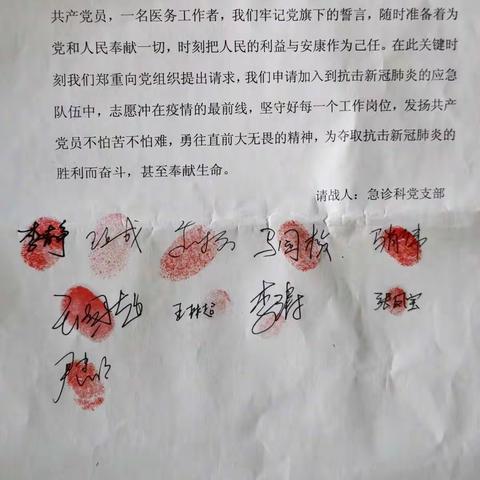 共产党员，一名医务工作者，我们牢记党旗下的誓言，随时准备着为
党和人民奉献一切，时刻把人民的利益与安康作为己任。在此关键时
刻我们郑重向党组织提出请求，我们申请加入到抗击新冠肺炎的应急
队伍中，志愿冲在疫情的最前线，坚守好每一个工作岗位，发扬共产
党员不怕苦不怕难，勇往直前大无畏的精神，为夺取抗击新冠肺炎的
胜利而奋斗，甚至奉献生命。
请战人：急诊科党支部
李静
王林超